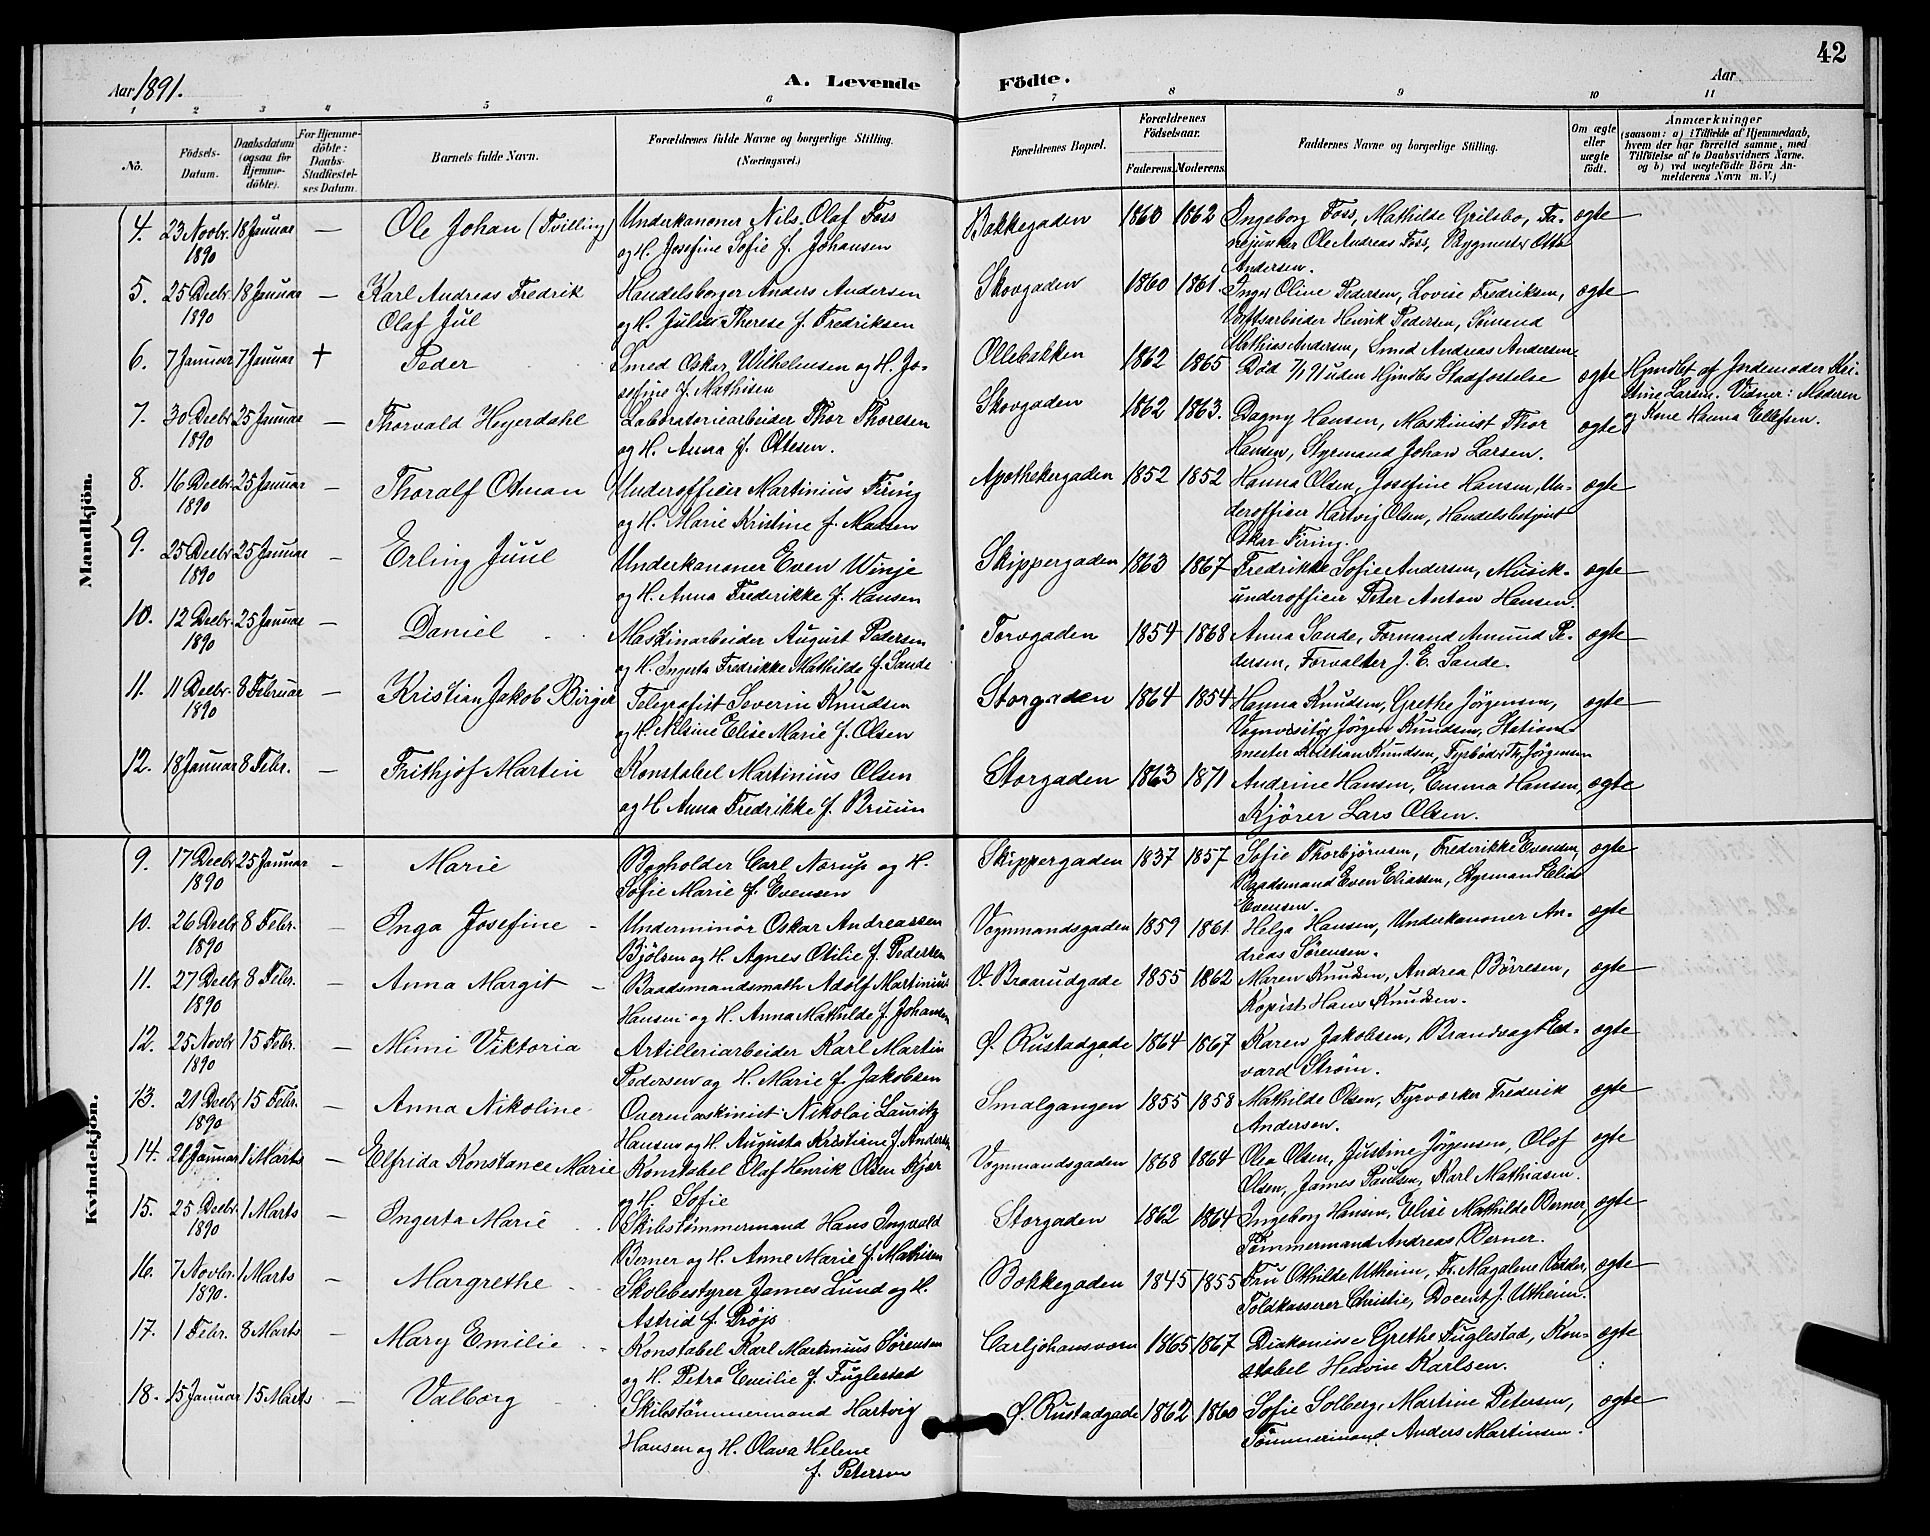 42
Aar 1891.
A. Levende Födte.
Aar
1 2 3 4 5 6 7 8 9 10 11
No.
Födsels-Datum.
Daabsdatum (ogsaa for Hjemme-döbte).
For Hjemme-döbte: Daabs-Stadfæstel-ses Datum.
Barnets fulde Navn.
Forældrenes fulde Navne og borgerlige Stilling. (Næringsvei.)
Forældrenes Bopæl.
Forældrenes Födselsaar.
Faderens. Moderens.
Faddernes Navne og borgerlige Stilling.
Om ægte eller uægte födt.
Anmærkninger
(saasom: a) i Tilfælde af Hjemmedaab, hvem der har forrettet samme, med Tilföielse af to Daabsvidners Navne. og b) ved uægtefödte Börn An-melderens Navn m. V.)
Mandkjön.
4. 23 Novbr. 1890 18 Januar — Ole Johan (Tvilling) Underkanoner Nils Olaf Foss og H. Josefine Sofie f. Johansen Bakkegaden 1860 1862 Ingeborg Foss, Mathilde Grilsbo, Fanejunker Ole Andreas Foss, Bygmester Otto Andersen. ægte
5. 25 Decbr 1890 18 Januar — Karl Andreas Fredrik Olaf Jul Handelsborger Anders Andersen og H. Julie Therese f. Fredriksen Skovgaden 1860 1861. Inger Oline Pedersen, Lovise Fredriksen, Værftsarbeider Henrik Pedersen, Sømand Mathias Andersen, Smed Andreas Andersen. ægte
6. 7 Januar 7 Januar † Peder Smed Oskar Wilhelmsen og H. Josefine f. Mathisen Ollebakken 1862 1865 Død 7/1 91 uden Hjmdbs Stadfæstelse ægte Hjmdbt af Jordemoder Kristine Larsen. Vidner: Moderen og Kone Hanna Ellefsen.
7. 30 Decbr 1890 25 Januar — Thorvald Heyerdahl Laboratoriearbeider Thor Thoresen og H. Anna f. Ottesen. Skovgaden 1862 1863. Dagny Hansen, Maskinist Thor Hansen, Styrmand Johan Larsen. ægte
8. 16 Decbr. 1890 25 Januar — Thoralf Otman Underofficer Martinius Firing og H. Marie Kristine f. Madsen Apothekergaden 1852 1852 Hanna Olsen, Josefine Hansen, Underofficer Hartvig Olsen, Handelsbetjent Oskar Firing. ægte
9. 25 Decbr 1890 25 Januar — Erling Juul Underkanoner Even Winje og H. Anna Frederikke f. Hansen Skippergaden 1863 1867 Fredrikke Sofie Andersen, Musikunderofficer Peter Anton Hansen. ægte
10. 12 Decbr 1890 25 Januar — Daniel Maskinarbeider August Pedersen og H. Ingerta Fredrikke Mathilde f. Sande Torvgaden 1854 1868 Anna Sande, Formand Amund Pedersen, Forvalter J. E. Sande. ægte
11. 11 Decbr. 1890 8 Februar — Kristian Jakob Birger Telegrafist Severin Knudsen og H. Nilsine Elise Marie f. Olsen Storgaden 1864 1854 Hanna Knudsen, Grethe Jørgensen, Vognvisitør Jørgen Knudsen, Stationsmester Kristian Knudsen, Fyrbøder Th. Jørgensen ægte
12. 18 Januar 8 Febr. — Frithjof Martin Konstabel Martinius Olsen og H Anna Fredrikke f. Bruun Storgaden 1863 1871 Andrine Hansen, Emma Hansen, Kjører Lars Olsen. ægte
Kvindekjön.
9. 17 Decbr 1890 25 Januar — Marie Bogholder Carl Aarup og H. Sofie Marie f. Evensen Skippergaden 1837 1857 Sofie Thorbjørnsen, Frederikke Evensen, Baadsmand Even Eliassen, Styrmand Elias Evensen. ægte
10. 26 Decbr 1890 8 Febr. — Inga Josefine Underminør Oskar Andreassen Bjølsen og H. Agnes Otilie f. Pedersen Vognmandsgaden 1859 1861. Helga Hansen, Underkanoner Andreas Sørensen. ægte
11. 27 Decbr 1890 8 Febr. — Anna Margit Baadsmandsmath Adolf Martinius Hansen og H. Anna Mathilde f. Johansen V. Braarudgade 1855 1862 Maren Knudsen, Andrea Børresen, Kopist Hans Knudsen. ægte
12. 25 Novbr 1890 15 Febr. — Mimi Viktoria Artilleriarbeider Karl Martin Pedersen og H. Marie f. Jakobsen Ø. Rustadgade 1864 1867 Karen Jakobsen, Brandvagt Edvard Strøm. ægte
13. 21 Decbr 1890 15 Febr. — Anna Nikoline Overmaskinist Nikolai Lauritz Hansen og H. Augusta Kristiane f. Andersen Smalgangen 1855 1858 Mathilde Olsen, Fyrværker Frederik Andersen. ægte
14. 21 Januar 1 Marts — Elfrida Konstance Marie Konstabel Olaf Henrik Olsen Kjær og H. Sofie Vognmandsgaden 1868 1864 Olea Olsen, Justine Jørgensen, Olaf Olsen, James Paulsen, Karl Mathiasen. ægte
15. 25 Decbr 1890 1 Marts — Ingerta Marie Skibstømmermand Hans Ingvald Berner og H. Anne Marie f. Mathisen Storgaden 1862 1864 Ingeborg Hansen, Elise Mathilde Berner, Tømmermand Andreas Berner. ægte
16. 7 Novbr. 1890. 1 Marts — Margrethe Skolebestyrer James Lund og H. Astrid f. Drøjs Bakkegaden 1845 1855 Fru Othilde Utheim, Fr. Magdalene Toldkasserer Christie, Docent J. Utheim. ægte
17. 1 Febr. 8 Marts — Mary Emilie Konstabel Karl Martinius Sørensen og H. Petra Emilie f. Fuglestad Carljohansværn 1865 1867 Diakonisse Grethe Fuglestad, Konstabel Hedvin Karlsen. ægte
18. 15 Januar 15 Marts — Valborg Skibstømmermand Hartvig Hansen og H. Olava Helene f. Petersen Ø. Rustadgade 1862 1860 Sofie Solberg, Martine Petersen, Tømmermand Anders Martinsen. ægte